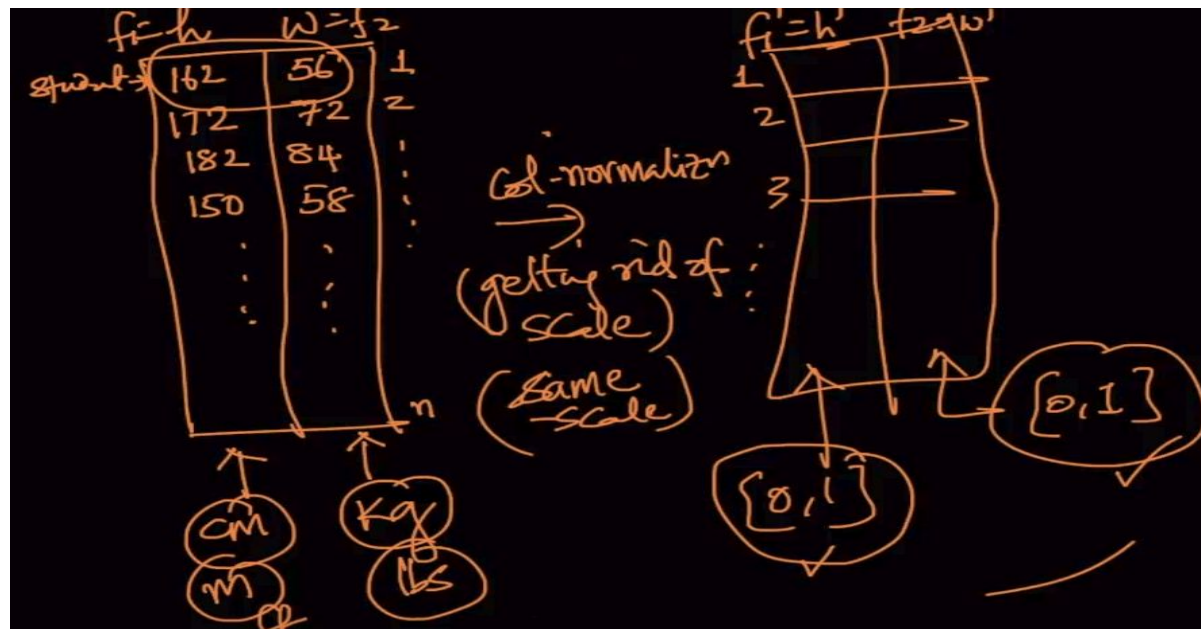 f1=h W=f2
student→ 162 56 1
172 72 2
182 84
150 58
n
cm Kg
m lbs
col-normalizn
(getting rid of
scale)
(same
scale)
f1'=h' f2'=w'
1
2
3
[0,1]
[0,1]